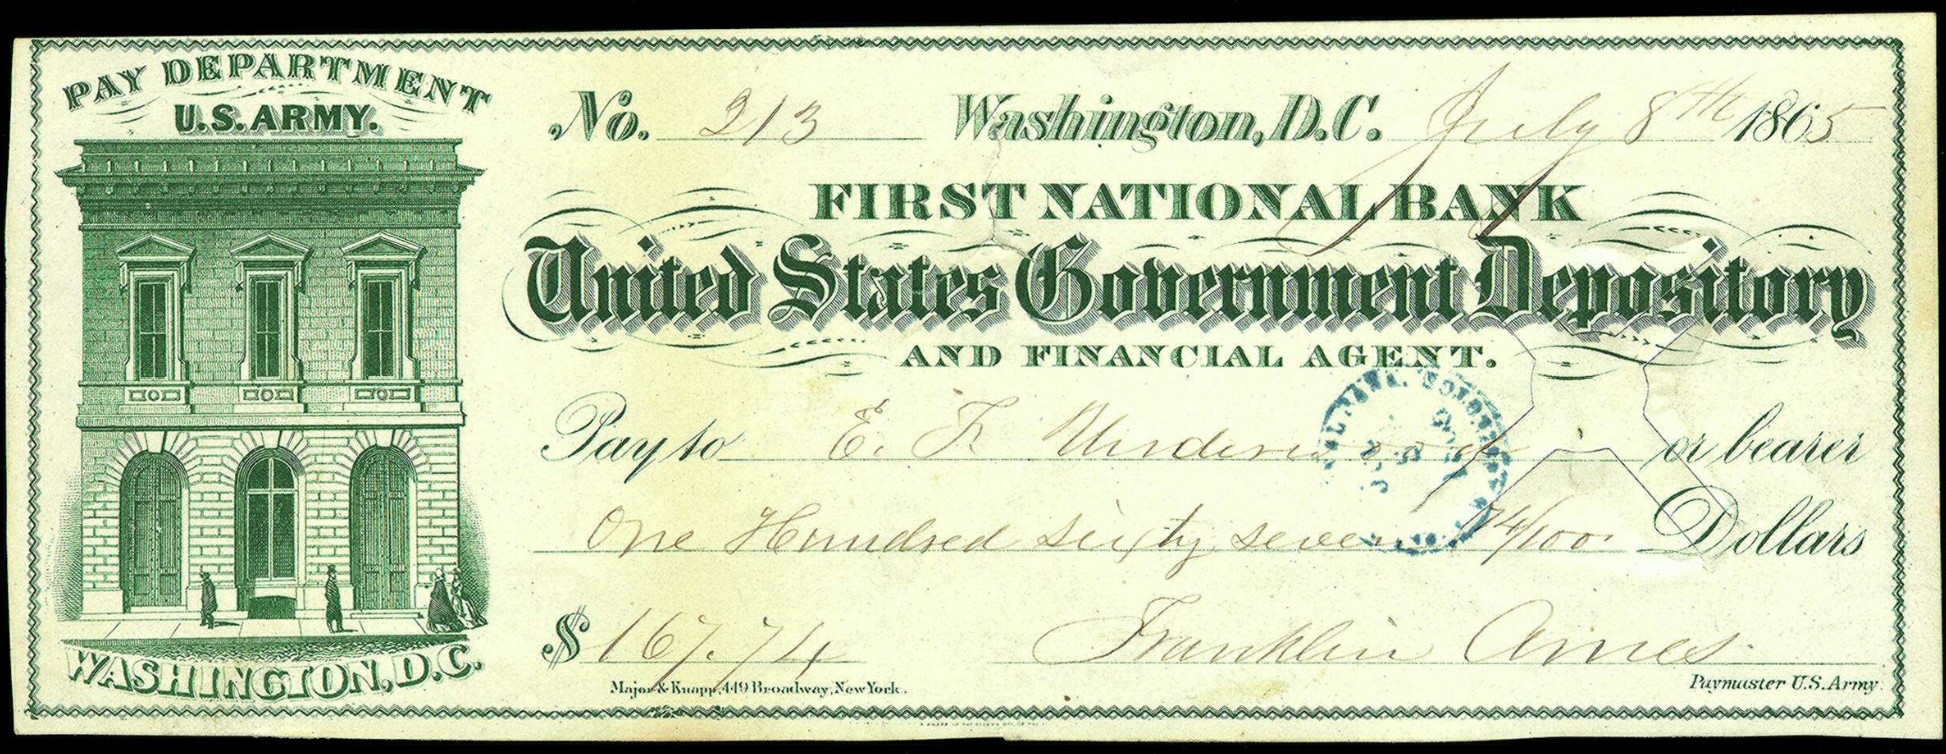 PAY DEPARTMENT
U.S. ARMY.
WASHINGTON, D.C.
No. 213 Washington, D.C. July 8th 1865
FIRST NATIONAL BANK
United States Government Depository
AND FINANCIAL AGENT.
Pay to E. F. Underwood or bearer
One Hundred sixty seven 74/100 Dollars
$ 167.74 Franklin Ames
Major & Knapp, 449 Broadway, New York.
Paymaster U.S. Army.